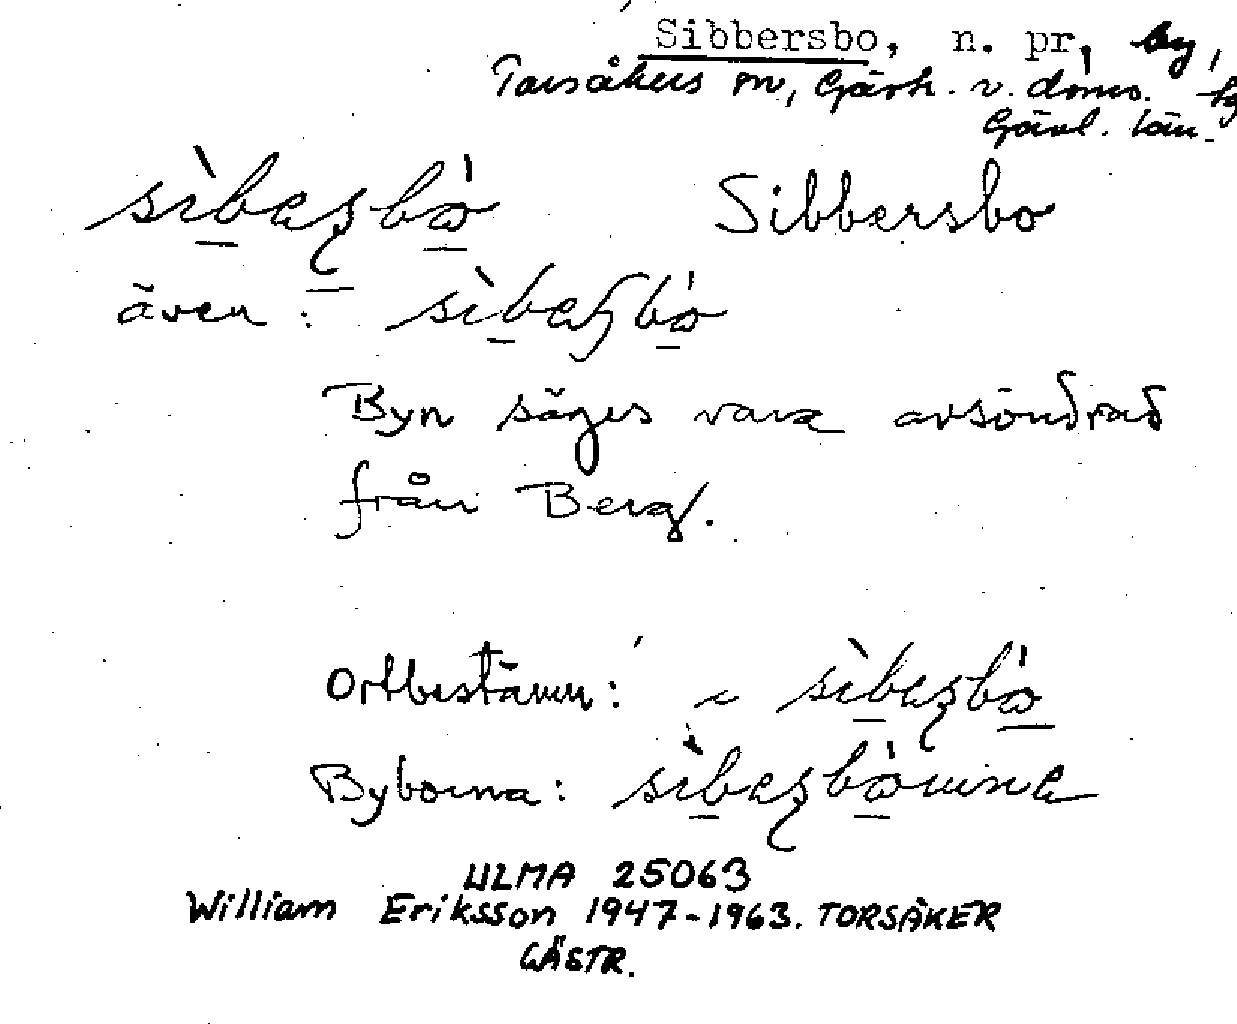 Sibbersbo, n. pr, by,
Torsåkers sn, Gästr. v. doms.
Gävl. län.
Sibbersbo
även :
Byn säges vara avsöndrad
från Berg.
Ortbestämn: i
Byborna:
ULMA 25063
William Eriksson 1947-1963. TORSÅKER
GÄSTR.